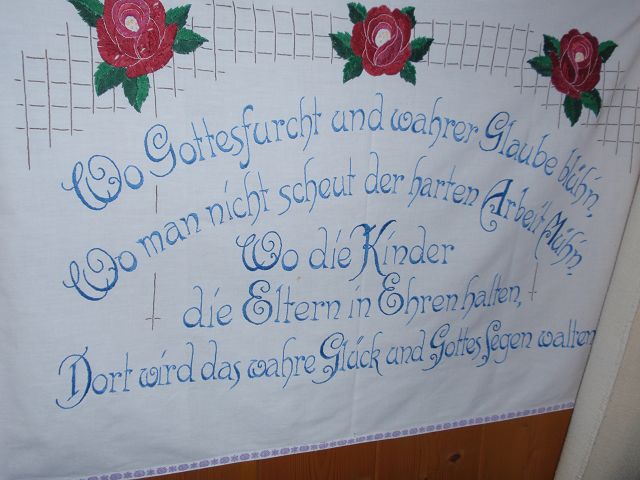 Wo Gottesfurcht und wahrer Glaube blühn,
Wo man nicht scheut der harten Arbeit Mühn,
Wo die Kinder
die Eltern in Ehren halten,
Dort wird das wahre Glück und Gottes Segen walten